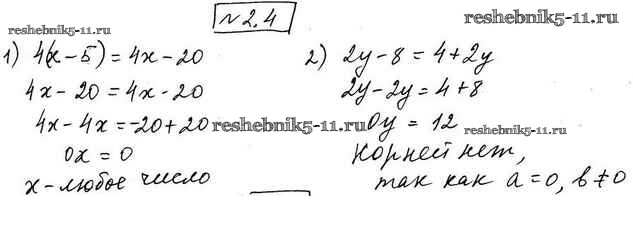 №2.4
reshebnik5-11.ru
reshebnik5-11.ru
1) 4(x-5)=4x-20
4x-20=4x-20
4x-4x=-20+20
0x=0
x-любое число
2) 2y-8=4+2y
2y-2y=4+8
0y=12
Корней нет,
так как a=0, b≠0
reshebnik5-11.ru
reshebnik5-11.ru